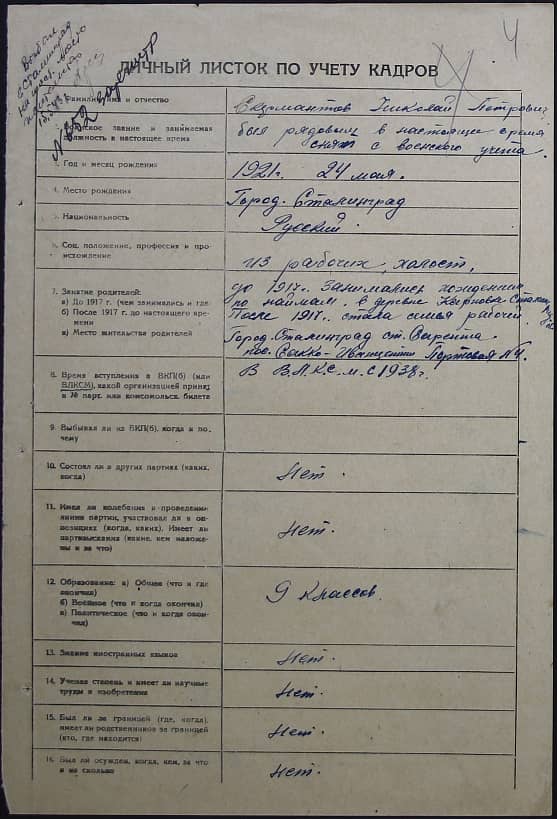 4
Выбыл
г. Сталинград
15.
№ 852
ЛИЧНЫЙ ЛИСТОК ПО УЧЕТУ КАДРОВ
Фамилия, имя и отчество
Николай Петрович
звание и занимаемая
должность в настоящее время
был рядовым в настоящее время
снят с военского учета.
Год и месяц рождения
1921 г. 24 мая.
4. Место рождения
Город. Сталинград
Национальность
Русский
Соц. положение, профессия и про-
исхождение
из рабочих, холост,
7. Занятие родителей:
а) До 1917 г. (чем занимались и где
б) После 1917 г. до настоящего вре-
мени
в) Место жительства родителей
до 1917 г. Занимались
по наймам. в деревне
После 1917 г. стала семья рабочей
Город. Сталинград ст.
пос. Сакко-Ванцетти Портовая № 4.
8. Время вступления в ВКП(б) (или
ВЛКСМ), какой организацией принят
и № парт. или комсомольск. билета
В В.Л.К.С.М. с 1938 г.
9. Выбывал ли из ВКП(б), когда и по-
чему
10. Состоял ли в других партиях (каких,
когда)
Нет.
11. Имел ли колебания в проведении
линии партии, участвовал ли в оп-
позициях (когда, каких). Имеет ли
партвзыскания (какие, кем наложе-
ны и за что)
Нет.
12. Образование: а) Общее (что и где
окончил)
б) Военное (что и когда окончил)
в) Политическое (что и когда окон-
чил)
9 классов.
13. Знание иностранных языков
Нет.
14. Ученая степень и имеет ли научные
труды и изобретения
Нет.
15. Был ли за границей (где, когда),
имеет ли родственников за границей
(кто, где находится)
Нет.
16. Был ли осужден, когда, кем, за что
и на сколько
Нет.